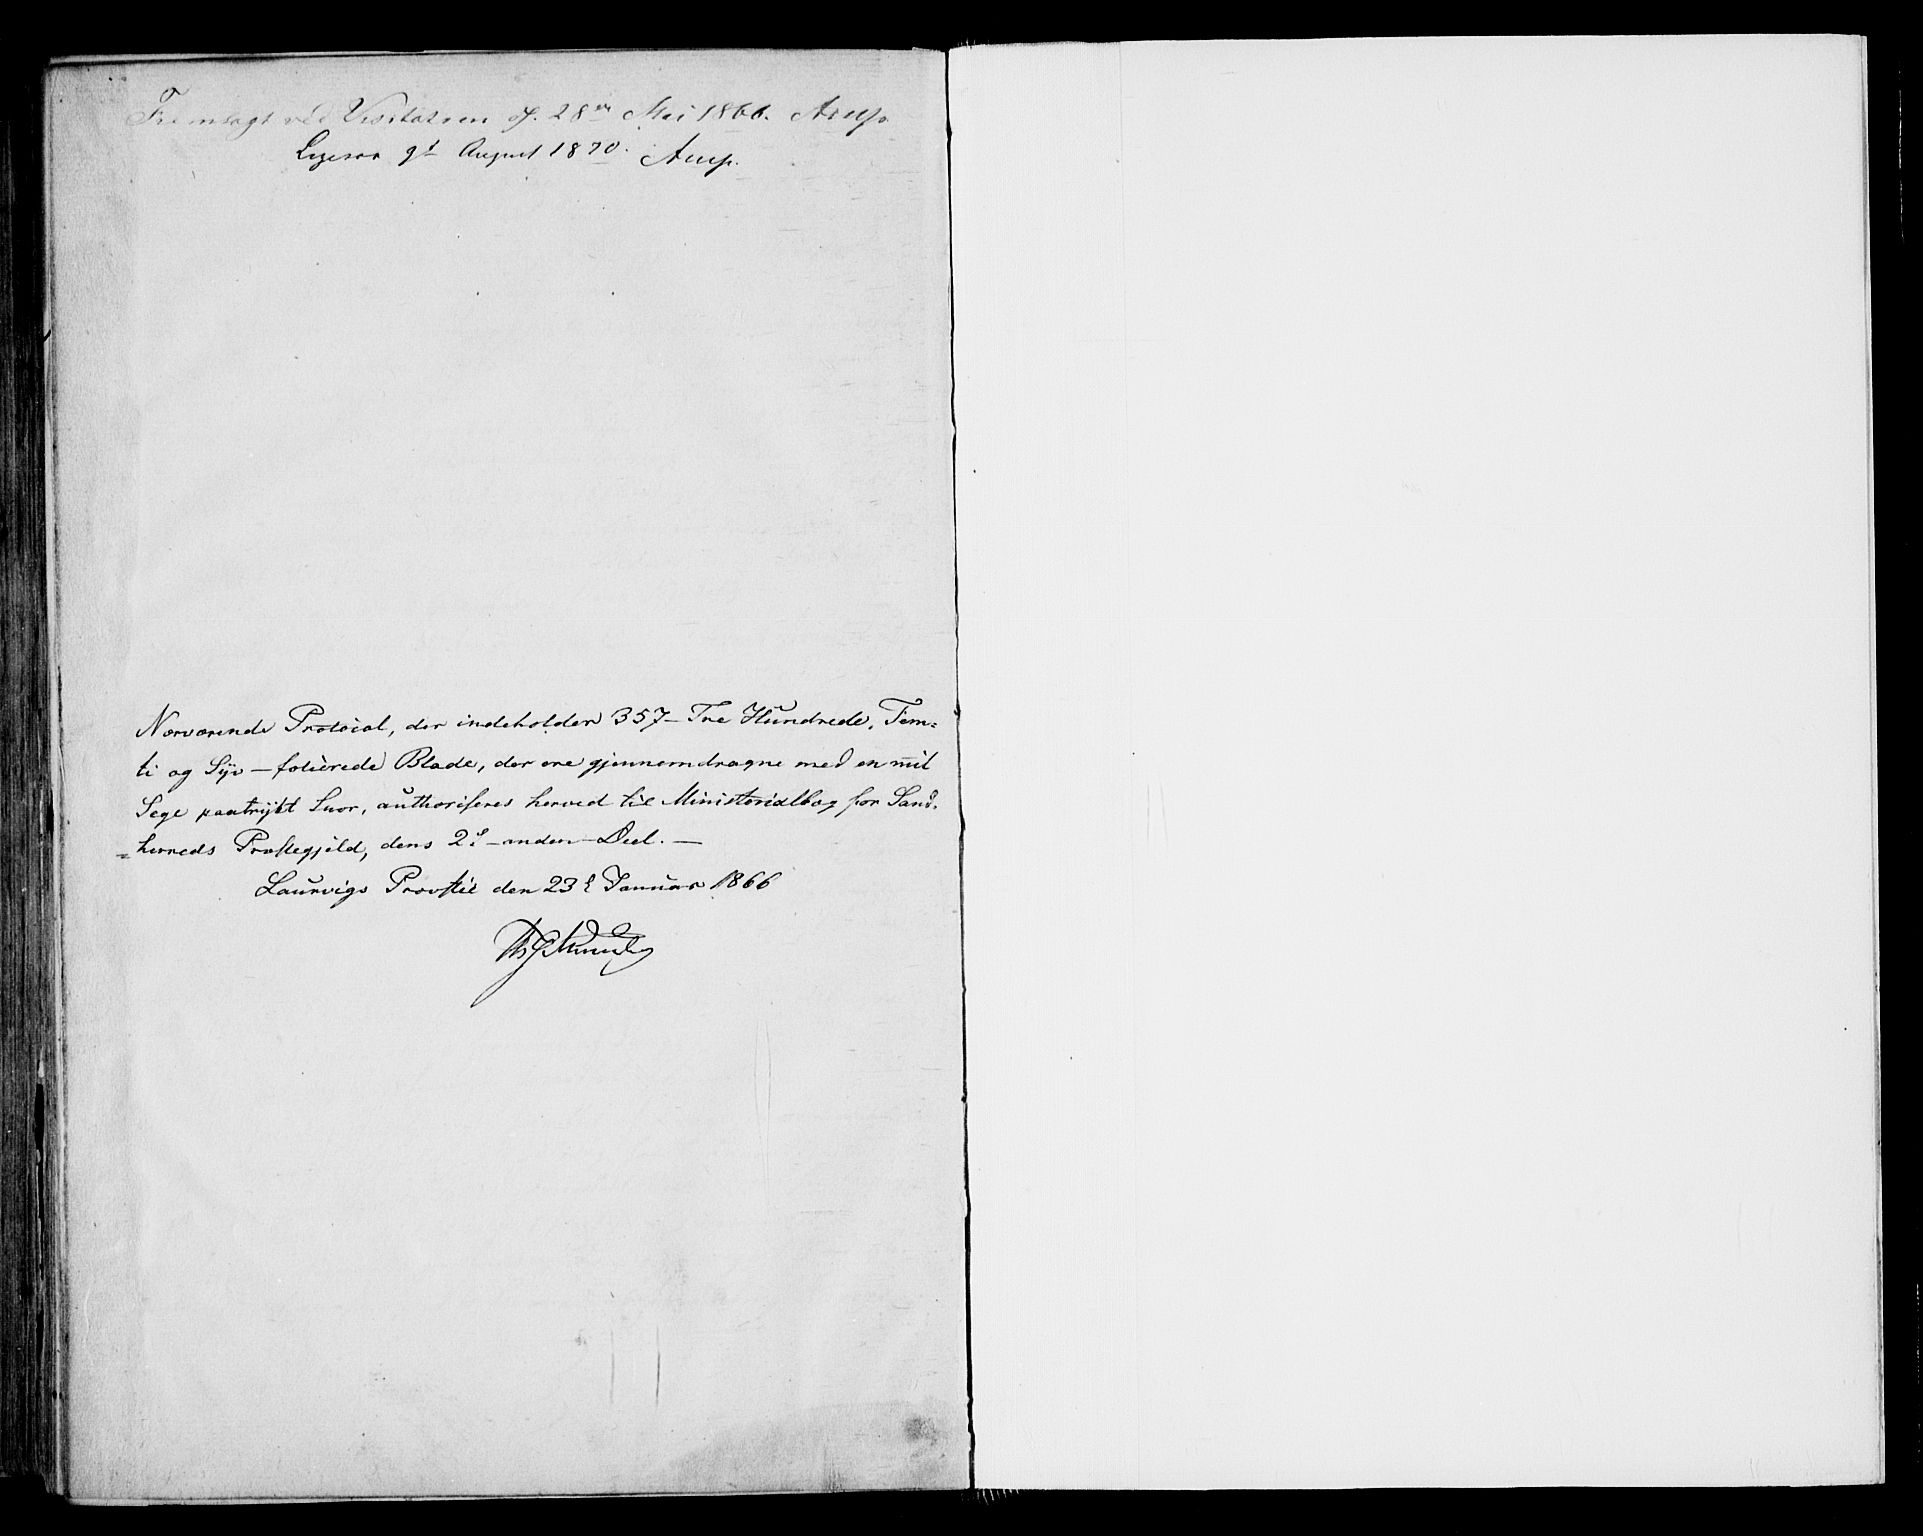 Fremlagt ved Visitatsen d. 28de Mai 1866. Arup.
Ligesaa 9d August 1870. Arup.
Nærværende Protocol, der indeholder 357 – Tre Hundrede, Fem=
ti og Syv – folierede Blade, der ere gjennemdragne med en mit
Segl paatrykt Snor, authoriseres herved til Ministerialbog for Sand=
=herreds Præstegjeld, dens 2d – anden – Deel. –
Laurvigs Provstie den 23d Januar 1866